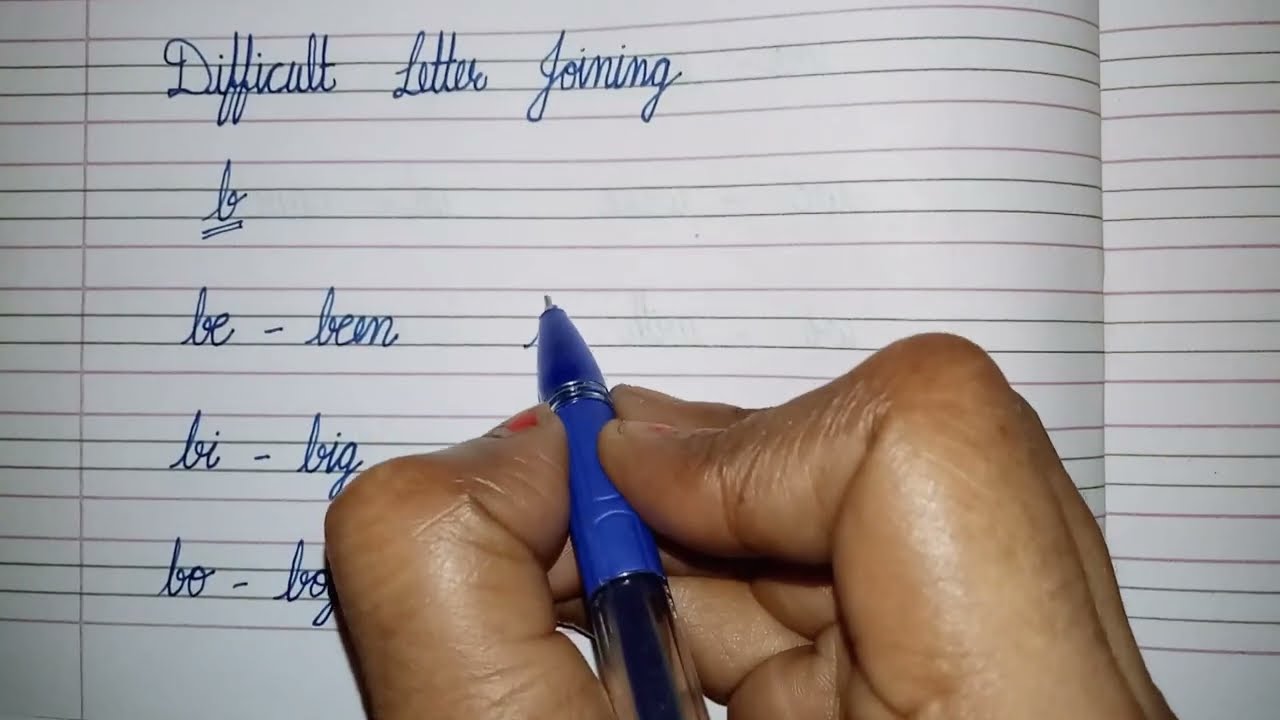 Difficult Letter Joining
b
be - been
bi - big
bo -